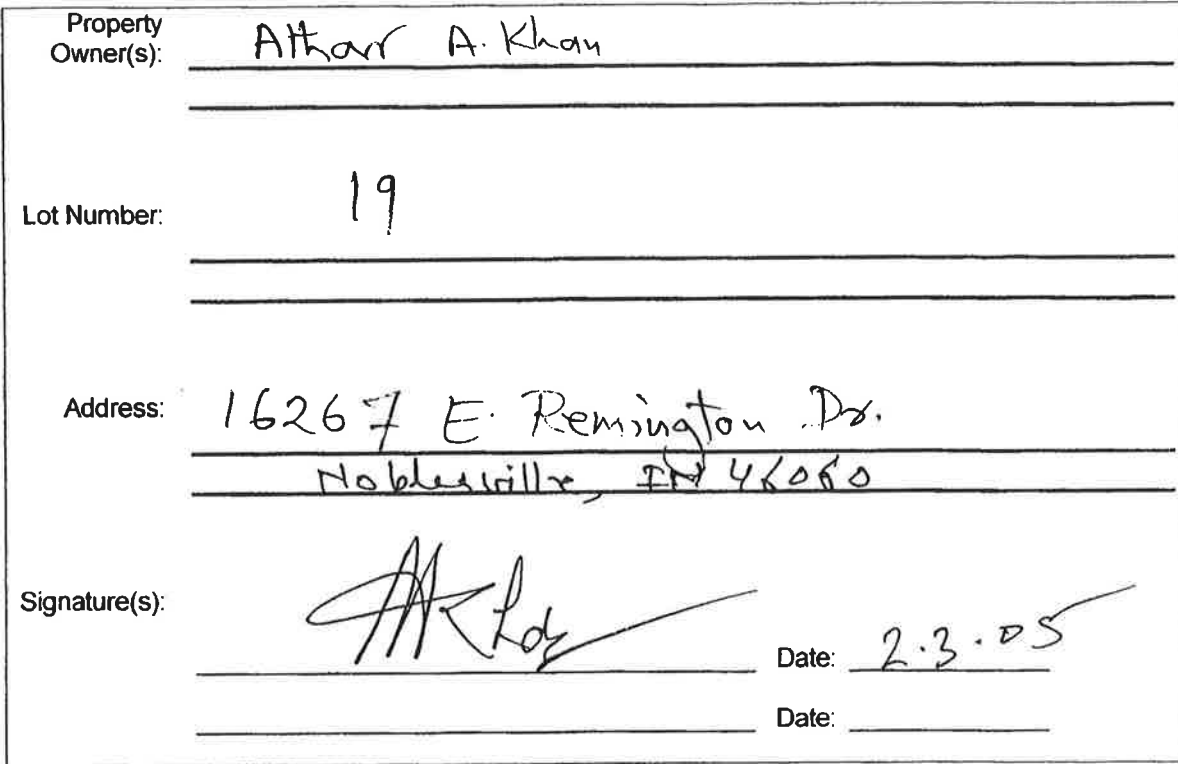 Property
Owner(s): Atharr A. Khan
Lot Number: 19
Address: 16267 E. Remington Dr.
Noblesville, IN 46060
Signature(s):
Date: 2.3.05
Date: